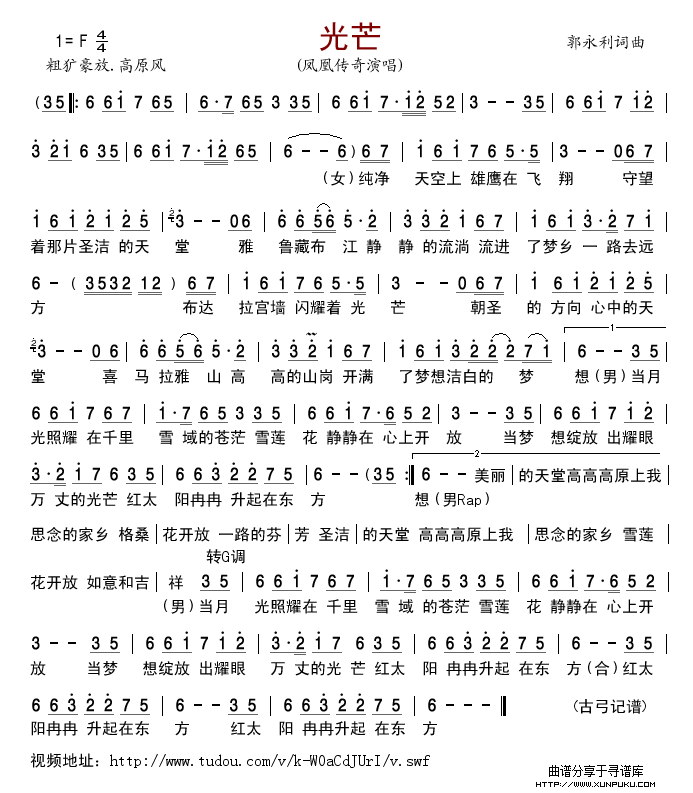 光芒
1= F 4/4
郭永利词曲
粗犷豪放.高原风
(凤凰传奇演唱)
(35‖: 6 6i 7 65 | 6·7 65 3 35 | 6 6i 7·i2 52 | 3 - - 35 | 6 6i 7 i2 |
3 2i 6 35 | 6 6i 7·i2 65 | 6 - - 6) 67 | i 6i 7 65·5 | 3 - - 067 |
(女)纯净 天空上 雄鹰在 飞 翔 守望
i 6i 2i 25 | 3 - - 06 | 6 656 5·2 | 3 32 i 67 | i 6i 3·2 7i |
着那片圣洁 的天 堂 雅 鲁藏布 江 静 静 的流淌 流进 了梦乡 一 路去远
6 - (3532 12) 67 | i 6i 7 65·5 | 3 - - 067 | i 6i2i 25 |
方 布达 拉宫墙 闪耀着 光 芒 朝圣 的 方向 心中的天
3 - - 06 | 6 656 5·2 | 3 32 i 67 | i 6i 322 27i | 6 - - 35 |
堂 喜 马 拉雅 山 高 高的山岗 开满 了梦想洁白的 梦 想(男)当月
6 6i 7 67 | i·7 65 335 | 6 6i 7·i·6 52 | 3 - - 35 | 6 6i 7 i2 |
光照耀 在千里 雪 域的苍茫 雪莲 花 静静在 心上开 放 当梦 想绽放 出耀眼
3·2 i7 i 35 | 6 63 22 75 | 6 - - (35 :‖ 6 - - 美丽 | 的天堂高高高原上我
万 丈的光芒 红太 阳冉冉 升起在东 方 想(男Rap)
思念的家乡 格桑 | 花开放 一路的芬 | 芳 圣洁 | 的天堂 高高高原上我 | 思念的家乡 雪莲
转G调
花开放 如意和吉 | 祥 35 | 6 6i 7 67 | i·7 65 335 | 6 6i 7·i·6 52 |
(男)当月 光照耀在 千里 雪 域的苍茫 雪莲 花 静静在 心上开
3 - - 35 | 6 6i 7 i2 | 3·2 i7 i 35 | 6 63 22 75 | 6 - - 35 |
放 当梦 想绽放 出耀眼 万 丈的光芒 红太 阳 冉冉升起 在东 方(合)红太
6 63 22 75 | 6 - - 35 | 6 63 22 75 | 6 - - ‖ (古弓记谱)
阳冉冉 升起在东 方 红太 阳 冉冉升起在东 方
视频地址: http://www.tudou.com/v/k-W0aCdJUrI/v.swf
曲谱分享于寻谱库
HTTP://WWW.XUNPUKU.COM